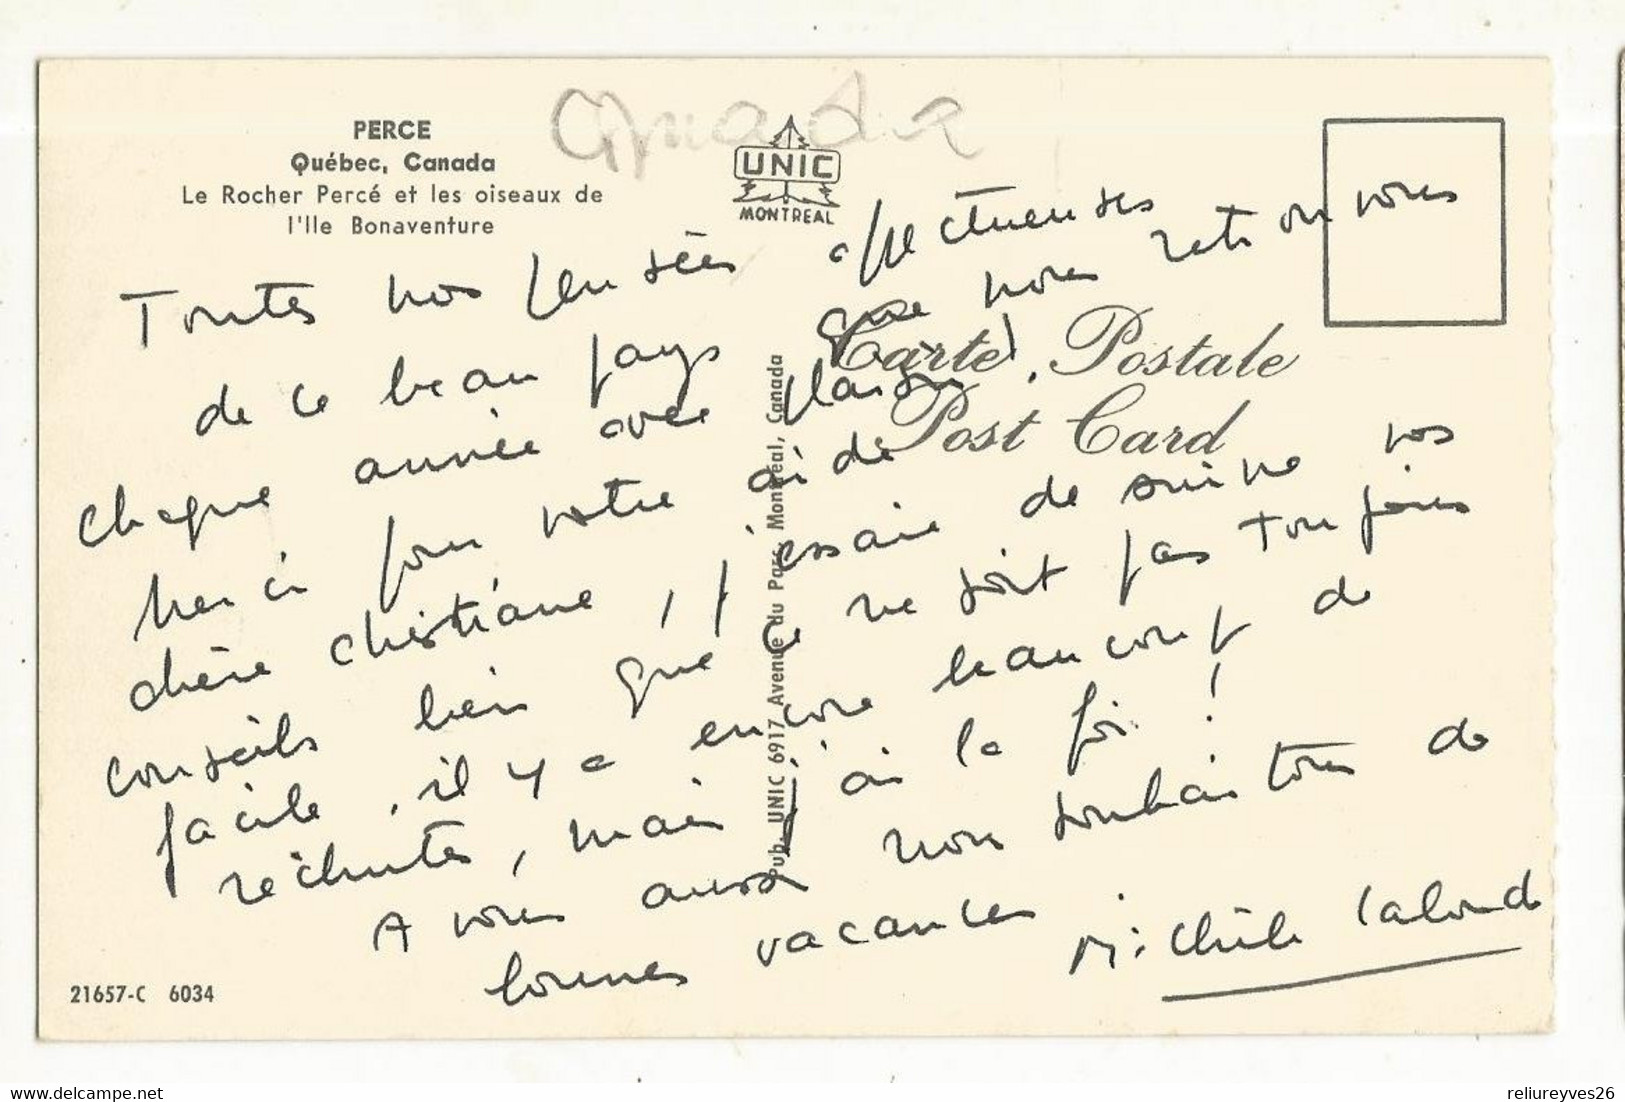 Canada
PERCE
Québec, Canada
Le Rocher Percé et les oiseaux de
l'Ile Bonaventure
UNIC
MONTREAL
Carte Postale
Post Card
Pub. UNIC 6917 Avenue du Parc, Montréal, Canada
Toutes nos pensées affectueuses
de ce beau pays que nous retrouvons
chaque année avec plaisir.
Merci pour votre aide
chère Christiane, j'essaie de suivre vos
conseils bien que ce ne soit pas toujours
facile, il y a encore beaucoup de
rechutes, mais j'ai la foi !
A vous aussi nous souhaitons de
bonnes vacances.
Michèle Lalonde
21657-C 6034
delcampe.net
reliureyves26